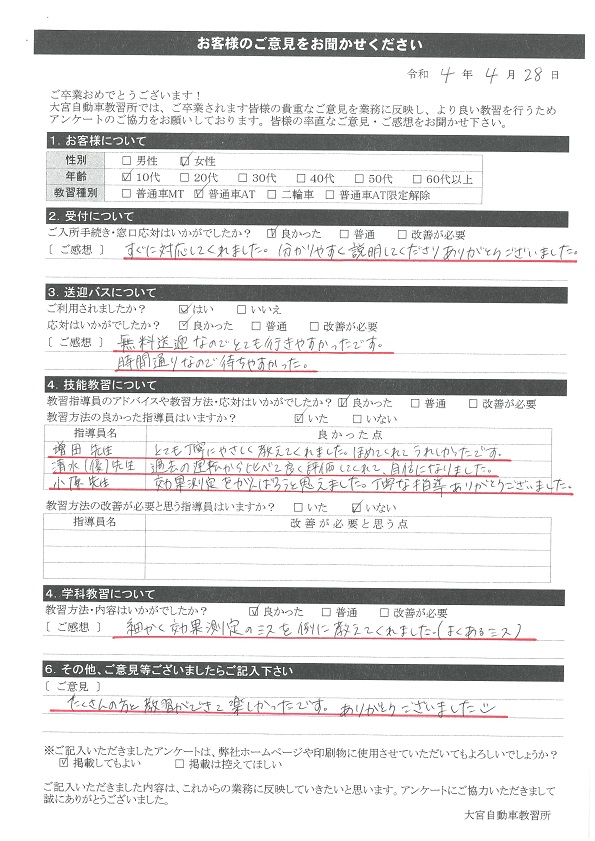 お客様のご意見をお聞かせください
令和 4 年 4 月 28 日
ご卒業おめでとうございます！
大宮自動車教習所では、ご卒業されます皆様の貴重なご意見を業務に反映し、より良い教習を行うため
アンケートのご協力をお願いしております。皆様の率直なご意見・ご感想をお聞かせ下さい。
1. お客様について
性別 □ 男性 ☑ 女性
年齢 ☑ 10代 □ 20代 □ 30代 □ 40代 □ 50代 □ 60代以上
教習種別 □ 普通車MT ☑ 普通車AT □ 二輪車 □ 普通車AT限定解除
2. 受付について
ご入所手続き・窓口応対はいかがでしたか？ ☑ 良かった □ 普通 □ 改善が必要
[ ご感想 ] すぐに対応してくれました。分かりやすく説明してくださりありがとうございました。
3. 送迎バスについて
ご利用されましたか？ ☑ はい □ いいえ
応対はいかがでしたか？ ☑ 良かった □ 普通 □ 改善が必要
[ ご感想 ] 無料送迎なのでとても行きやすかったです。
時間通りなので待ちやすかった。
4. 技能教習について
教習指導員のアドバイスや教習方法・応対はいかがでしたか？ ☑ 良かった □ 普通 □ 改善が必要
教習方法の良かった指導員はいますか？ ☑ いた □ いない
指導員名 良かった点
増田 先生 とても丁寧にやさしく教えてくれました。ほめてくれてうれしかったです。
清水(優)先生 過去の運転からくらべて良く評価してくれて、自信になりました。
小原 先生 効果測定をがんばろうと思えました。丁寧な指導ありがとうございました。
教習方法の改善が必要と思う指導員はいますか？ □ いた ☑ いない
指導員名 改善が必要と思う点
4. 学科教習について
教習方法・内容はいかがでしたか？ ☑ 良かった □ 普通 □ 改善が必要
[ ご感想 ] 細かく効果測定のミスを例に教えてくれました。(よくあるミス)
6. その他、ご意見等ございましたらご記入下さい
[ ご意見 ]
たくさんの方と教習ができて楽しかったです。ありがとうございました
※ご記入いただきましたアンケートは、弊社ホームページや印刷物に使用させていただいてもよろしいでしょうか？
☑ 掲載してもよい □ 掲載は控えてほしい
ご記入いただきました内容は、これからの業務に反映していきたいと思います。アンケートにご協力いただきまして
誠にありがとうございました。
大宮自動車教習所